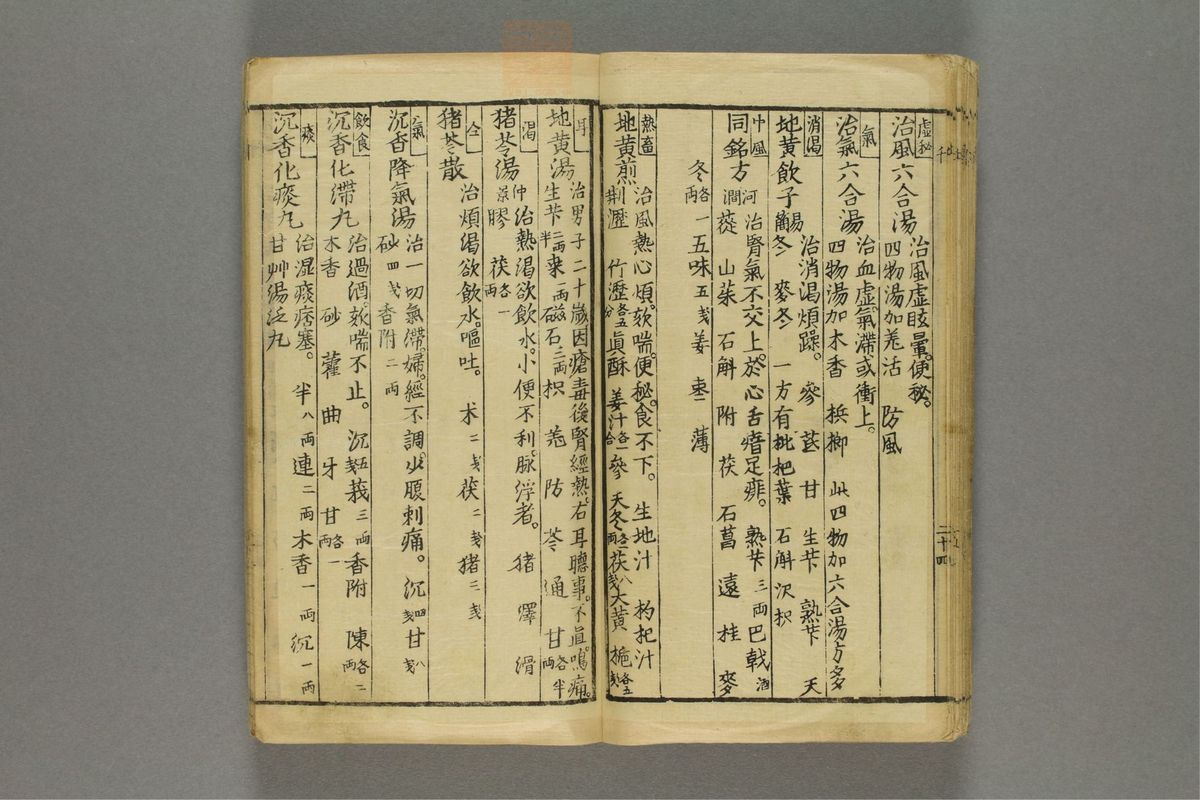 虛秘
治風六合湯
治風虛眩暈。便秘。
四物湯加羌活 防風
氣
治氣六合湯
治血虛氣滯或衝上。
四物湯加木香 梹榔 此四物加六合湯方多
消渴
地黄飲子
易簡
治消渴煩躁。 參 芪 甘 生苄 熟苄 天
冬 麥冬 一方有枇杷葉 石斛 沢 枳
中風
同銘方
河澗
治腎氣不交上。於心舌瘖足痱。 熟苄三両 巴戟酒
蓯 山茱 石斛 附 茯 石菖 遠 桂 麥
冬各一両 五味五戔 姜 棗二 薄
熱畜
地黄煎
治風熱心煩。欬喘。便秘。食不下。 生地汁 枸杞汁
荆瀝 竹瀝各五分 眞酥 姜汁各一合 參 天冬各一両 茯八戔 大黄 梔各五戔
耳
地黄湯
治男子二十歲因瘡毒後腎經熱。右耳聽事。不眞。鳴痛。
生苄二両半 桒一両 磁石二両 枳 羗 防 苓 通 甘各半両
渇
猪苓湯
仲景
治熱渇欲飲水。小便不利。脉浮者。 猪 澤 滑
膠 茯各一両
仝
猪苓散
治煩渇欲飲水。嘔吐。 术二戔 茯二戔 猪二戔
氣
沉香降氣湯
治一切氣滯。婦。經不調。少腹刺痛。 沉四戔 甘八戔
砂四戔 香附二両
飲食
沉香化滯丸
治過酒。欬喘不止。 沉五戔 莪三両 香附 陳各二両
木香 砂 藿 曲 牙 甘各一両
痰
沉香化痰丸
治湿痰痞塞。 半八両 連二両 木香一両 沉一両
甘艸湯泛丸
二十四